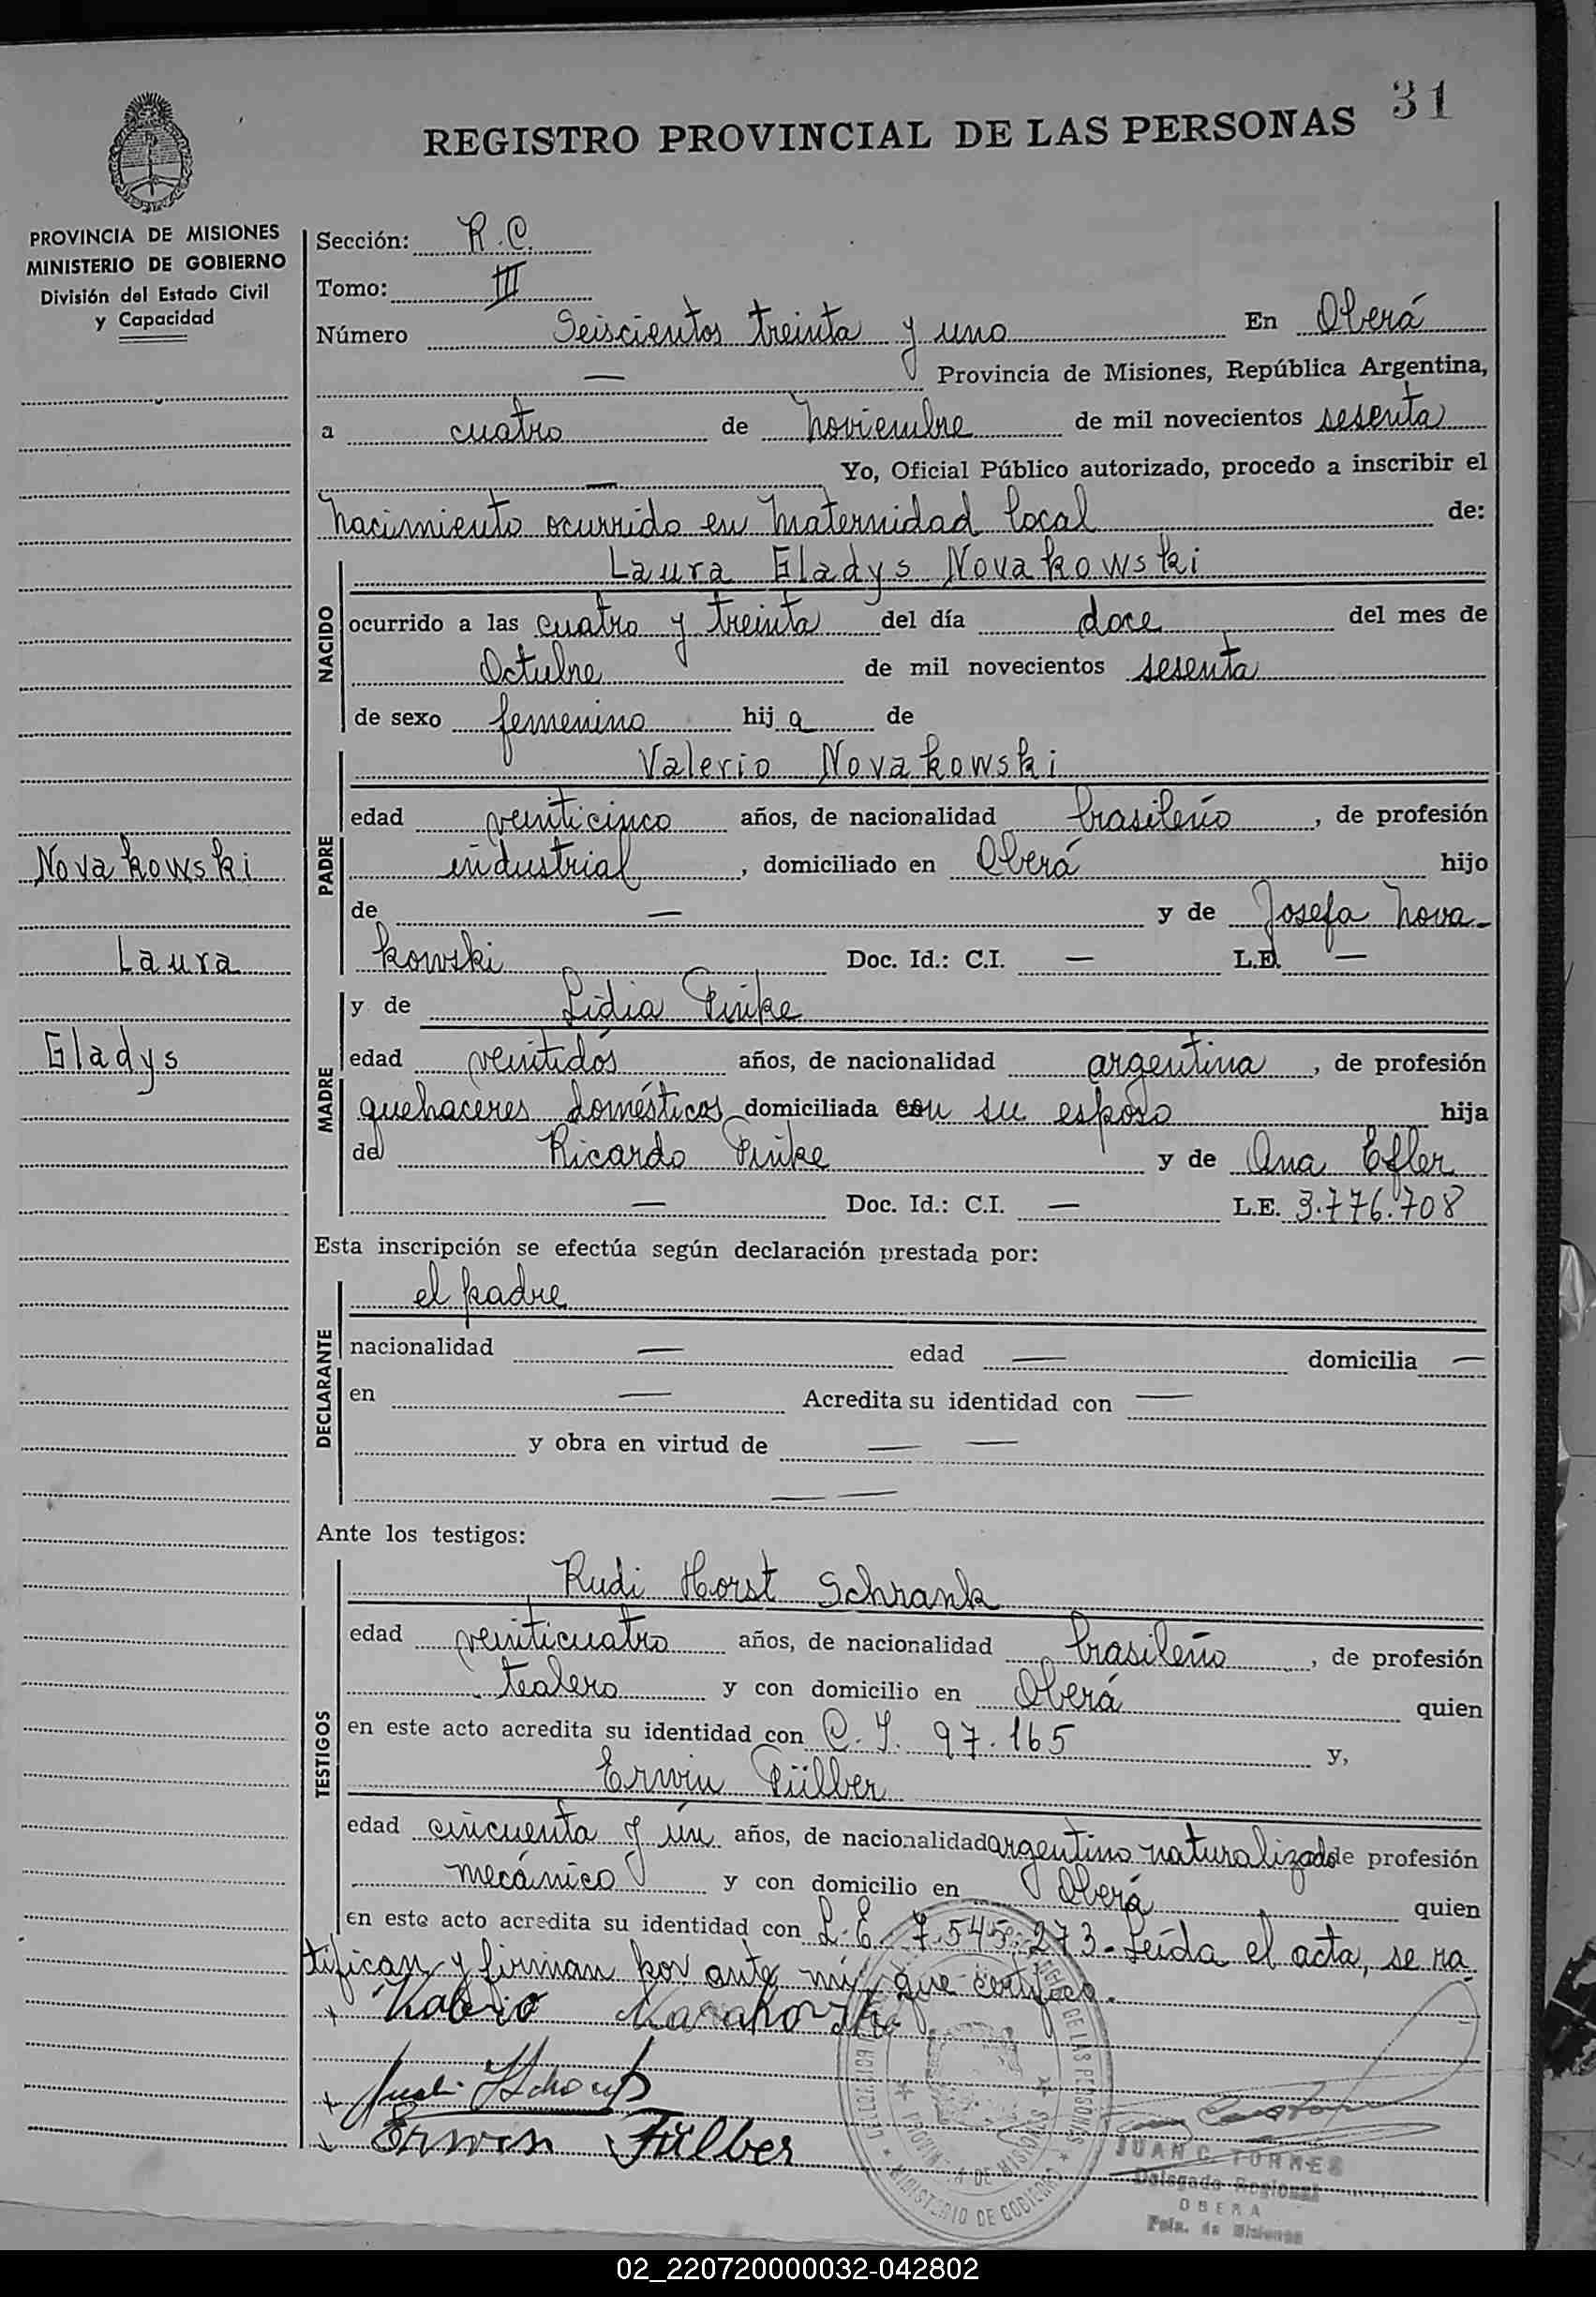 31
REGISTRO PROVINCIAL DE LAS PERSONAS
PROVINCIA DE MISIONES
MINISTERIO DE GOBIERNO
División del Estado Civil
y Capacidad
Sección: R.C.
Tomo: III
Número Seiscientos treinta y uno En Oberá
— Provincia de Misiones, República Argentina,
a cuatro de Noviembre de mil novecientos sesenta
— Yo, Oficial Público autorizado, procedo a inscribir el
Nacimiento ocurrido en Maternidad Local de:
NACIDO
Laura Gladys Novakowski
ocurrido a las cuatro y treinta del día doce del mes de
Octubre de mil novecientos sesenta
de sexo femenino hija de
PADRE
Valerio Novakowski
edad veinticinco años, de nacionalidad brasileño, de profesión
industrial, domiciliado en Oberá hijo
de — y de Josefa Nova-
kowski Doc. Id.: C.I. — L.E. —
Novakowski
Laura
Gladys
MADRE
y de Lidia
edad veintidós años, de nacionalidad argentina, de profesión
quehaceres domésticos domiciliada con su esposo hija
de Ricardo y de Ana Efler
— Doc. Id.: C.I. — L.E. 3.776.708
Esta inscripción se efectúa según declaración prestada por:
DECLARANTE
el padre
nacionalidad — edad — domicilia —
en — Acredita su identidad con —
y obra en virtud de — —
— —
Ante los testigos:
TESTIGOS
Rudi Horst Schrank
edad veinticuatro años, de nacionalidad brasileño, de profesión
tealero y con domicilio en Oberá quien
en este acto acredita su identidad con C.I. 97.165 y,
Erwin Fülber
edad cincuenta y ún años, de nacionalidad argentino naturalizado de profesión
mecánico y con domicilio en Oberá quien
en este acto acredita su identidad con L.E. 7.545.273.- Leída el acta, se ra
tifican y firman por ante mí, que certifico.
Erwin Fülber
DE LAS PERSONAS
PROVINCIA DE MISIONES
MINISTERIO DE GOBIERNO
JUAN C. TORRES
Delegado Regional
OBERA
Pcia. de Misiones
02_220720000032-042802